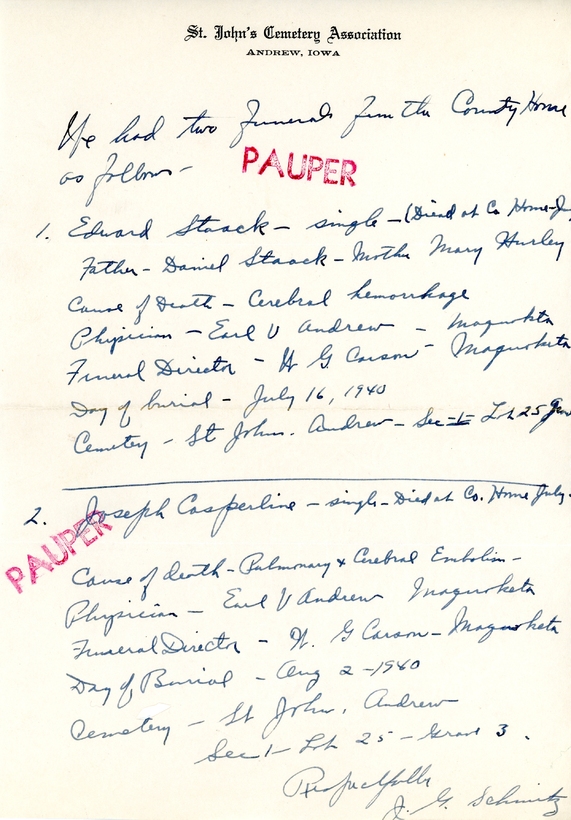 St. John's Cemetery Association
ANDREW, IOWA
We had two funerals from the County Home
as follows -
PAUPER
1. Edward Staack - single - (Died at Co Home -
Father - Daniel Staack - Mother Mary Hurley
Cause of Death - Cerebral hemorrhage
Physician - Earl V Andrew - Maquoketa
Funeral Director - W G Carson - Maquoketa
Day of burial - July 16, 1940
Cemetey - St Johns. Andrew - Sec 1 Lot 25
2. Joseph Casperline - single - Died at Co. Home July
PAUPER
Cause of death - Pulmonary & Cerebral Embolism -
Physician - Earl V Andrew Maquoketa
Funeral Director - W. G Carson - Maquoketa
Day of Burial - Aug 2 - 1940
Cemetery - St John, Andrew
Sec 1 - Lot 25 - Grave 3.
Respectfully
J. G. Schmitz